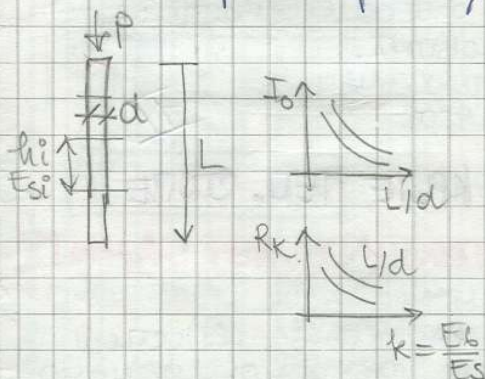 P
d
hi
Esi
L
I₀
L/d
Rₖ
L/d
k = Eb/Es